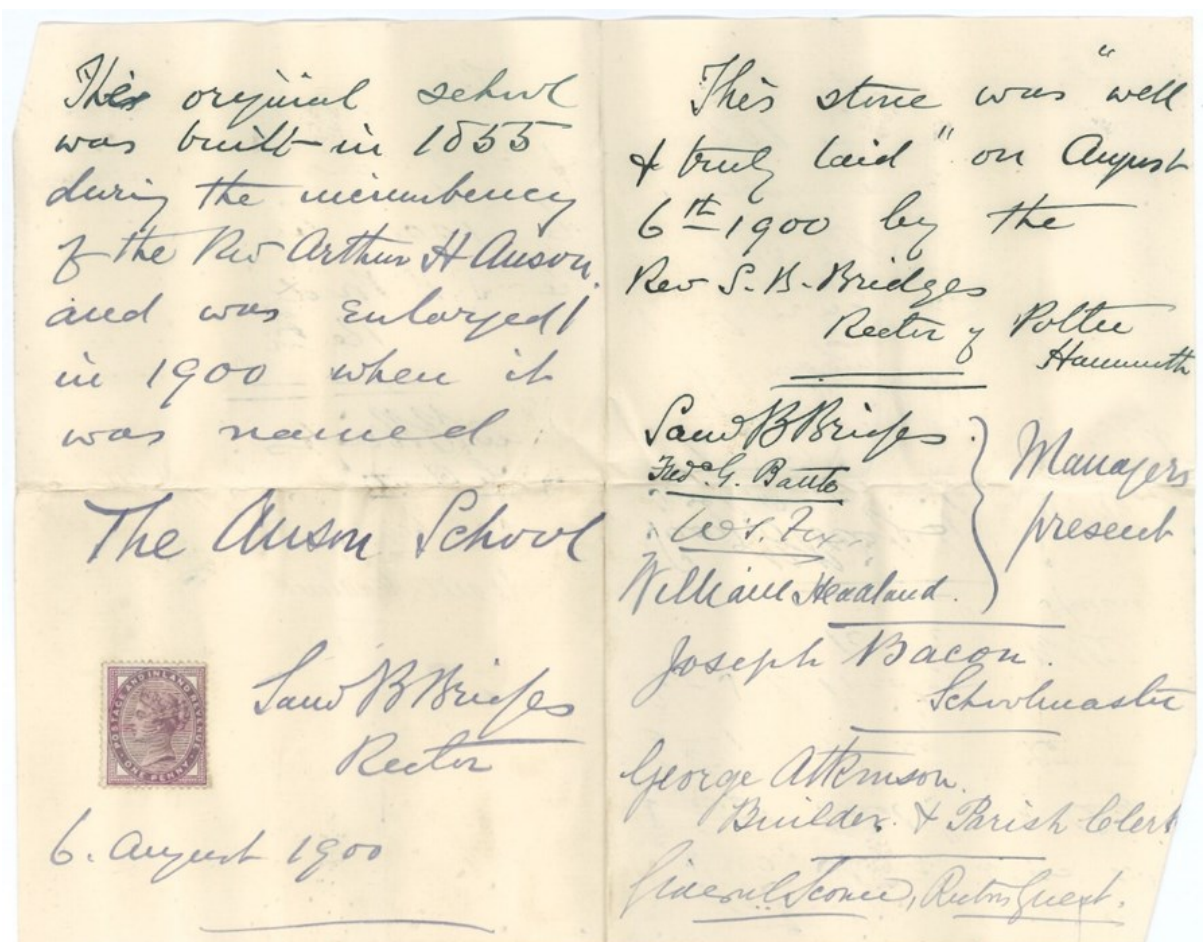 This original school
was built in 1855
during the incumbency
of the Rev Arthur H Anson
and was enlarged
in 1900 when it
was named
The Anson School
POSTAGE AND INLAND REVENUE
ONE PENNY
Saml B Bridges
Rector
6. August 1900
This stone was "well
& truly laid" on August
6th 1900 by the
Rev S. B. Bridges
Rector of Potter
Hanworth
Saml B Bridges
G.
W. S. Fox
William Headland.
Managers
present
Joseph Bacon.
Schoolmaster
George Atkinson.
Builder. & Parish Clerk
Rectors Guest.